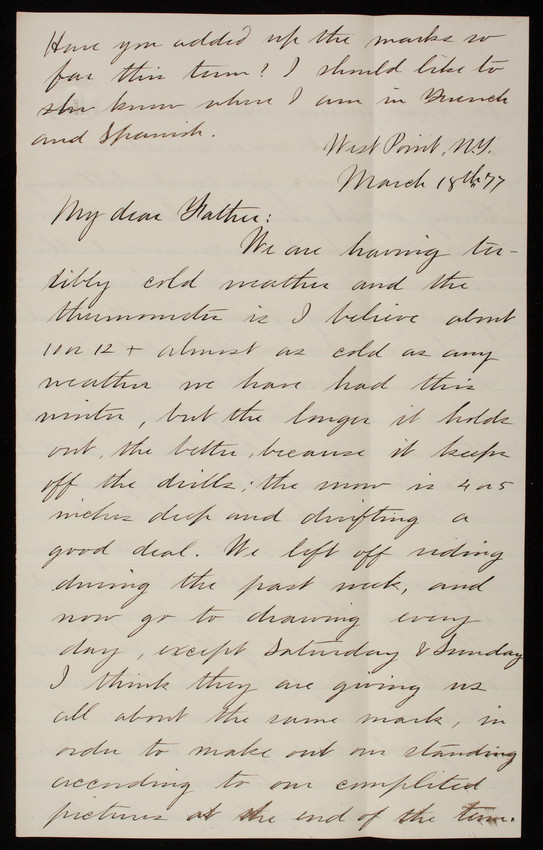 Have you added up the marks so
far this term? I should like to
know where I am in French
and Spanish.
West Point, N.Y.
March 18th '77
My dear Father:
We are having ter-
ribly cold weather and the
thermometer is I believe about
10 or 12 + almost as cold as any
weather we have had this
winter, but the longer it holds
out, the better, because it keeps
off the drills; the snow is 4 or 5
inches deep and drifting a
good deal. We left off riding
during the past week, and
now go to drawing every
day, except Saturday & Sunday
I think they are giving us
all about the same mark, in
order to make out our standing
according to our complited
pictures at the end of the term.